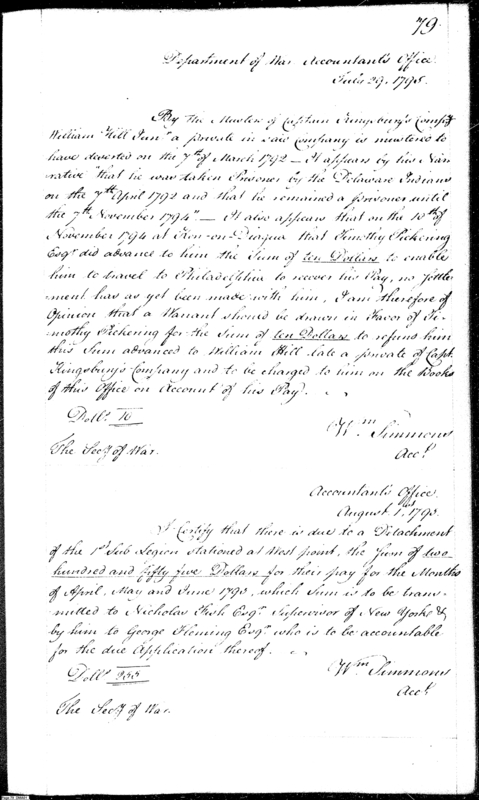 79.
Department of War Accountant's Office.
July 29. 1795.
By the Muster of Captain Kingsbury's Compy
William Hill Junr a private in said Company is mustered to
have deserted on the 7th of March 1792 — It appears by his Nar-
rative that he was taken Prisoner by the Delaware Indians
on the 7th April 1792 and that he remained a prisoner until
the 7th November 1794 — It also appears that on the 10th of
November 1794 at that Timothy Pickering
Esqr did advance to him the Sum of ten Dollars to enable
him to travel to Philadelphia to recover his Pay, no settle-
ment has as yet been made with him, I am therefore of
Opinion that a Warrant should be drawn in Favor of Ti-
mothy Pickering for the Sum of ten Dollars to refund him
this Sum advanced to William Hill late a private of Capt.
Kingsbury's Company and to be charged to him on the Books
of this Office on Account of his Pay.
Dolls. 10
Wm Simmons
Acct.
The Secy of War.
Accountant's Office.
August 1st 1795.
I Certify that there is due to a Detachment
of the 1st Sub Legion stationed at West point, the Sum of two
hundred and fifty five Dollars for their pay for the Months
of April, May and June 1795, which Sum is to be trans-
mitted to Nicholas Fish Esqr Supervisor of New York &
by him to George Fleming Esqr who is to be accountable
for the due Application thereof.
Dolls. 255
Wm Simmons
Acct.
The Secy of War.